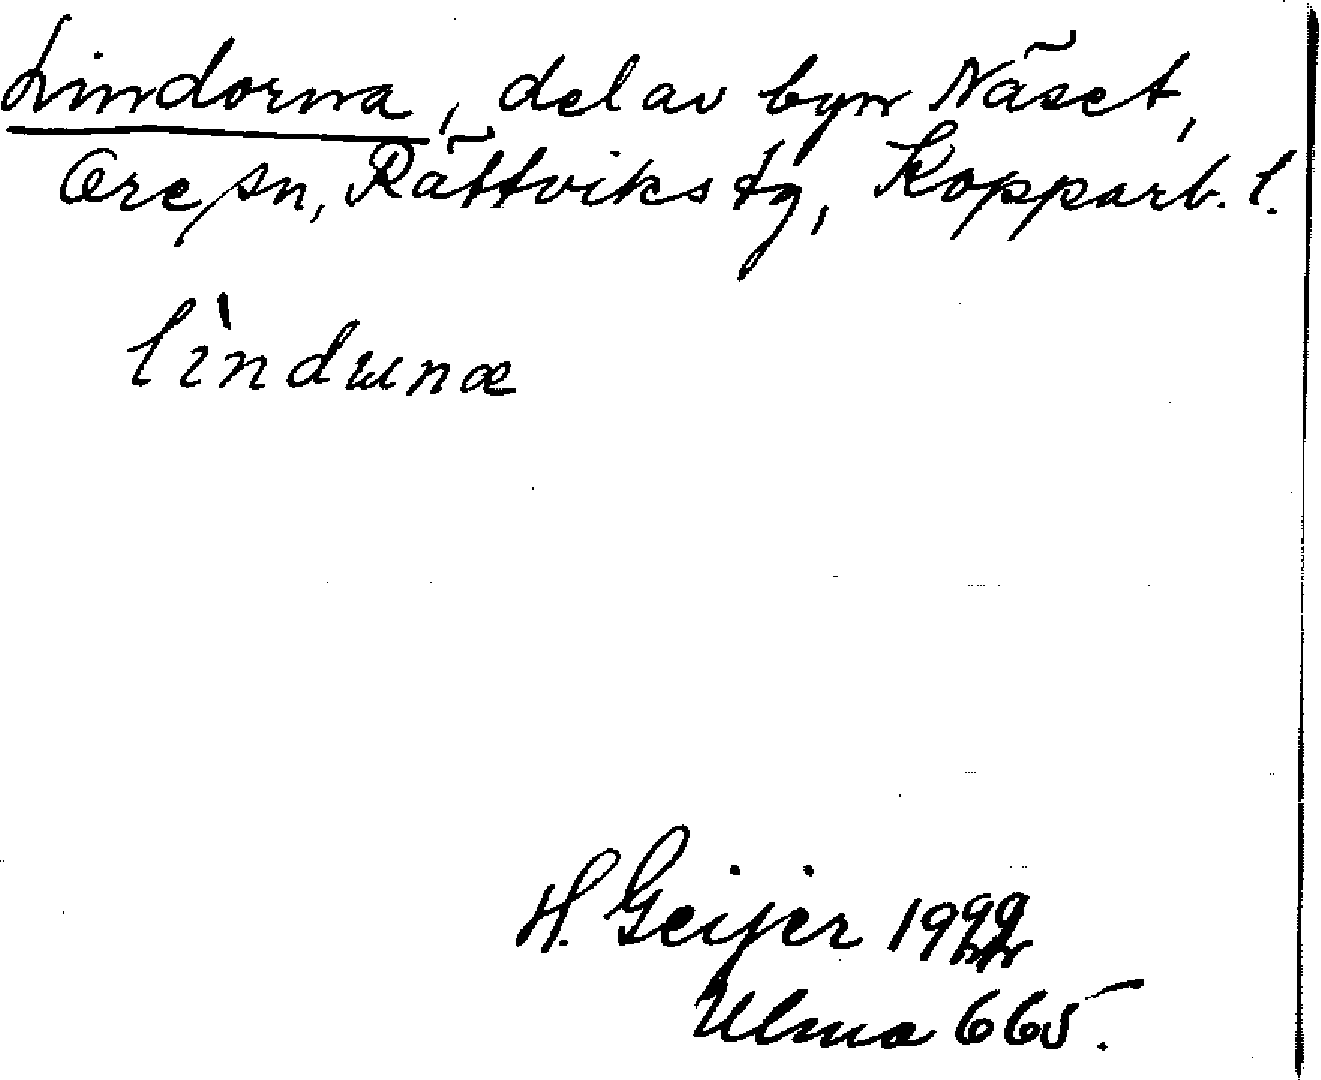 Lindorna, del av byn Näset,
Ore sn, Rättviks tg, Kopparb. l.
lìndɯnæ
H. Geijer 1922
Ulma 665.